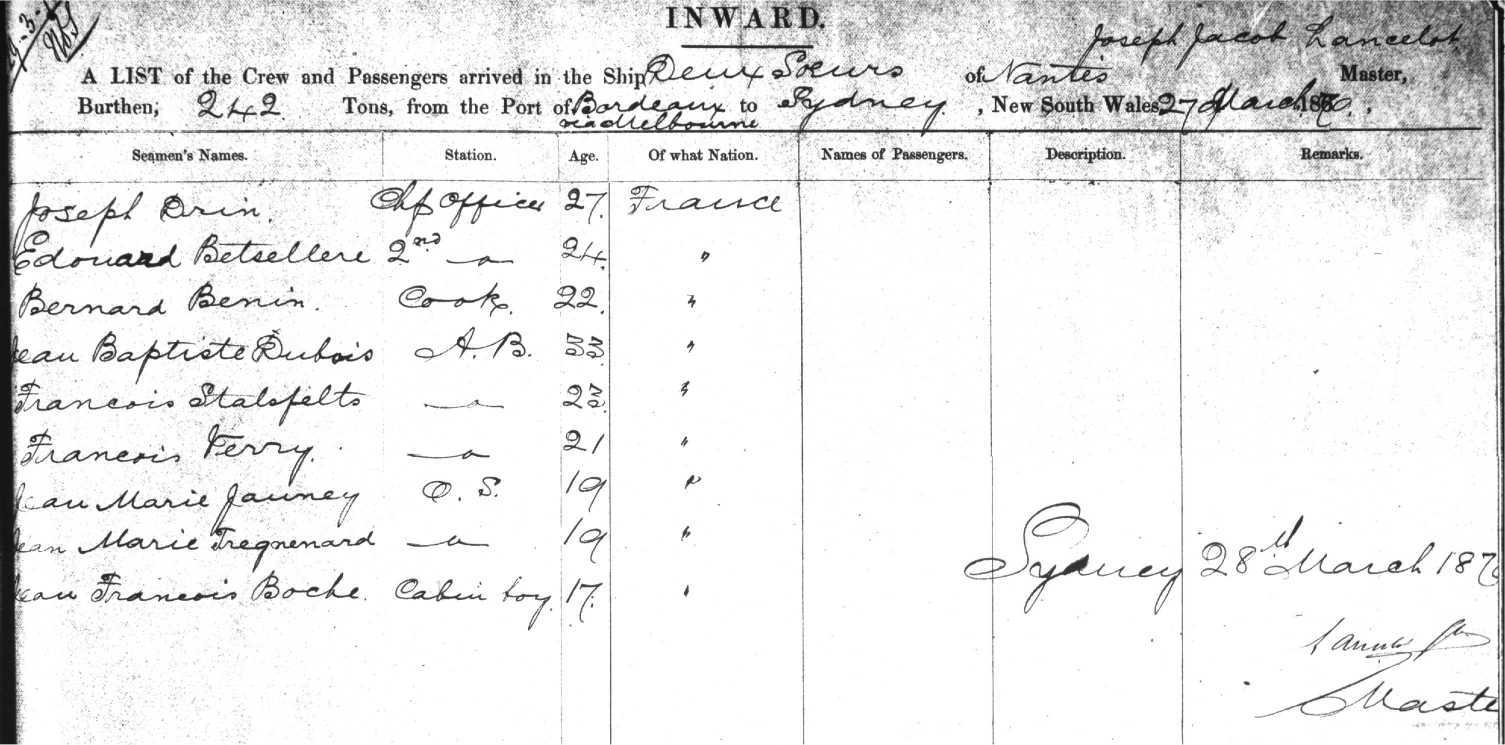 INWARD.
Joseph Jacob Lancelot
A LIST of the Crew and Passengers arrived in the Ship Deux Soeurs of Nantes Master,
Burthen, 242 Tons, from the Port of Bordeaux to Sydney, New South Wales 27 March
via Melbourne
Seamen's Names. Station. Age. Of what Nation. Names of Passengers. Description. Remarks.
Joseph Drin. Chf Officer 27. France
Edouard Betsellere 2nd —„— 24. "
Bernard Benin. Cook. 22. "
Jean Baptiste Dubois A.B. 33. "
Francois Stalsfelts —„— 23. "
Francois Ferry. —„— 21 "
Jean Marie Jauney O.S. 19 "
Jean Marie Tregnenard —„— 19 "
Jean Francois Boche. Cabin boy. 17. "
Sydney 28th March
Master